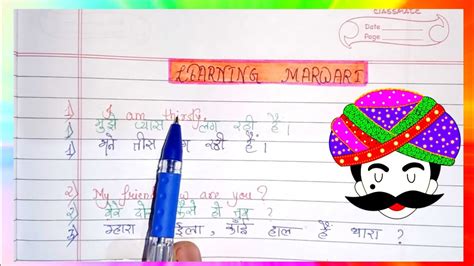 CLASSMATE
Date
Page
LEARNING MARWARI
1) I am thirsty.
मुझे प्यास लग रही है।
1) मने तीस रही है।
2) My friend are you?
मेरे कैसे हो तुम ?
2) म्हारा काँई हाल है थारा ?